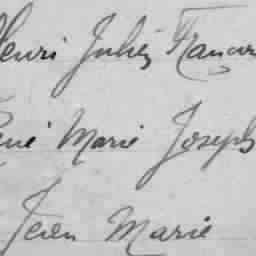 Henri Jules Franc
René Marie Joseph
Jean Marie